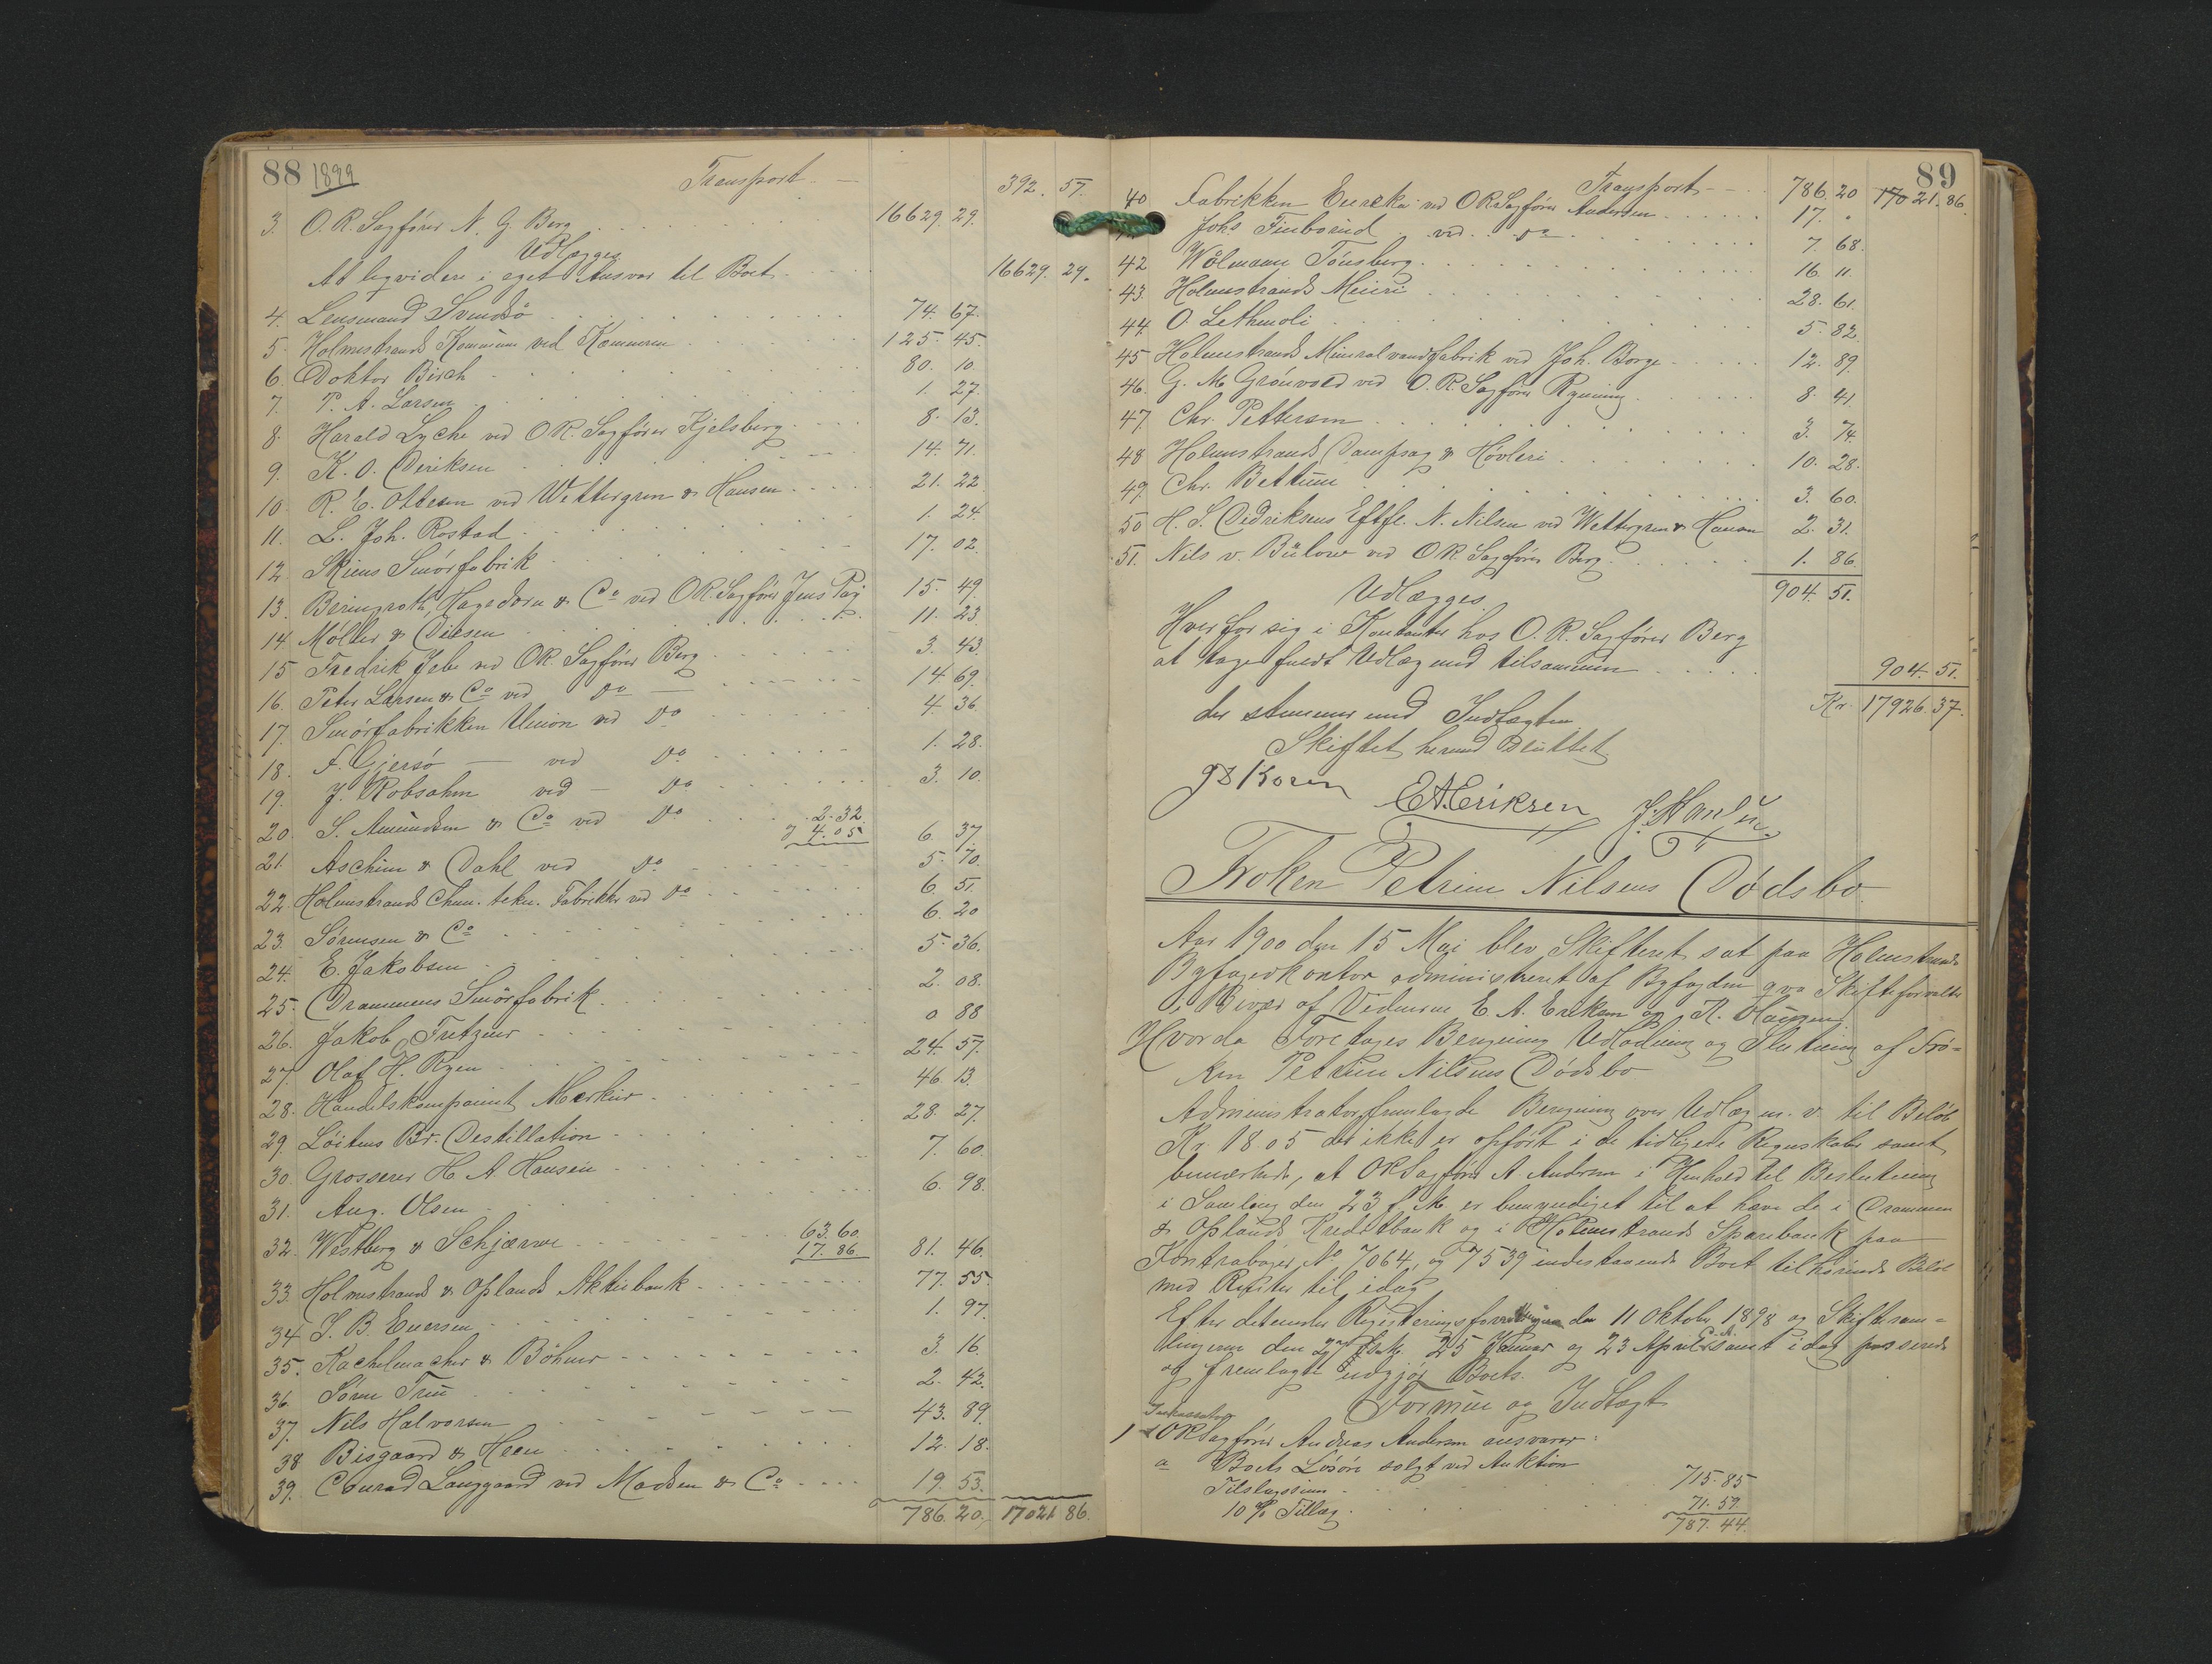 88 1899
Transport 392. 57.
3. O. R. Sagfører N. G. Berg 16629. 29.
Udlægges
At liqvidere i eget Ansvar til Boet 16629. 29.
4. Lensmand Svendsö 74. 67.
5. Holmestrands Kommune ved Kæmneren 125. 45.
6. Doktor Birch 80. 10.
7. P. A. Larsen 1. 27.
8. Harald Lyche ved O.R. Sagfører Kjelsberg 8. 13.
9. K. O. Diriksen 14. 71.
10. R. E. Ottesen ved Wettergren & Hansen 21. 22.
11. L. Joh. Rostad 1. 24.
12. Skiens Smörfabrik 17. 02.
13. Beringroth, Hagedorn & Co ved O.R. Sagfører Jens 15. 49.
14. Møller & Diesen 11. 23.
15. Fredrik Jebe ved O.R. Sagfører Berg 3. 43.
16. Peter Larsen & Co ved do 14. 69.
17. Smörfabrikken Union ved do 4. 36.
18. F. Gjersö ved do 1. 28.
19. J. Robsahm ved do 3. 10.
20. S. Amundsen & Co ved do 2. 32.
4. 05 6. 37.
21. Aschim & Dahl ved do 5. 70.
22. Holmestrands Chem. tekn. Fabrikker ved do 6. 51.
23. Sörensen & Co 6. 20
24. E. Jakobsen 5. 36.
25. Drammens Smörfabrik 2. 08.
26. Jakob Fritzner 0 88
27. Olaf H. Ryen 24. 57.
28. Handelskompaniet Merkur 46. 13.
29. Löitens Br. Destillation 28. 27.
30. Grosserer H. A. Hansen 7. 60.
31. Aug. Olsen 6. 98.
32. Westberg & Schjærve 63. 60.
17. 86. 81. 46.
33. Holmestrand & Oplands Aktiebank 77. 55.
34. S. B. Evensen 1. 97.
35. Kachelmacher & Böhmer 3. 16.
36. Sören 2. 42.
37. Nils Halvorsen 43. 89.
38. Bisgaard & Heen 12. 18.
39. Conrad Langgaard ved Madsen & Co 19. 53.
786. 20. 17021 86.
89
Transport 786. 20 17021. 86.
40 Fabrikken Eureka ved O.R. Sagfører Andersen 17. "
Johs Finborud ved do 7. 68.
42 Wölmann Tönsberg 16. 11.
43. Holmestrands Meieri 28. 61.
44. O. Lethmoli 5. 82.
45 Holmestrands Mineralvandfabrik ved Joh. Borge 12. 89.
46. G. M. Grönvold ved O.R. Sagfører Rynning 8. 41.
47 Chr. Pettersen 3. 74.
48 Holmestrands Dampsag & Høvleri 10. 28.
49. Chr. Bettum 3. 60.
50 H. S. Didriksens Eftfl. N. Nilsen ved Wettergren & Hansen 2. 31.
51. Nils v. Bülow ved O.R. Sagfører Berg 1. 86.
904. 51.
Udlægges
Hver for sig i Kontanter hos O. R. Sagfører Berg
at tage fuldt Udlæg med tilsammen 904. 51.
der stemmer med Indtægten Kr. 17926. 37.
Skiftet hermed Sluttet
Koren E A Eriksen J. Hansen
Frøken Petrine Nilsens Dødsbo
Aar 1900 den 15 Mai blev Skifteret sat paa Holmestrands
Byfogedkontor administreret af Byfogden qva Skifteforvalter
i Nærvær af Vidnerne E. A. Eriksen og H. Haugen
Hvorda Foretages Beregning Udlodning og Slutning af Frö-
ken Petrine Nilsens Dødsbo
Administrator fremlagde Beregning over Udlæg m. v. til Beløb
Kr. 18.05 der ikke er opført i de tidligere Regnskaber samt
bemærkede, at O.R. Sagfører A. Andersen i Henhold til Beslutning
i Samling den 23 f. M. er bemyndiget til at hæve de i Drammen
& Oplands Kreditbank og i Holmestrands Sparebank paa
Kontrabøger No 7064, og 7539 indestaaende Boet tilhørende Beløb
med Renter til idag
Efter detunder Registreringsforretningen den 11 Oktober 1898 og Skiftesam-
lingerne den 27 25 Januar og 23 April d. A. samt idag passerede
og fremlagte udgjør Boets
Formue og Indtægt
Inkassator
1 O.R. Sagfører Andreas Andersen ansvarer:
a Boets Løsøre solgt ved Auktion
Tilslagssum 715. 85
10 % Tillæg 71. 59
787. 44.